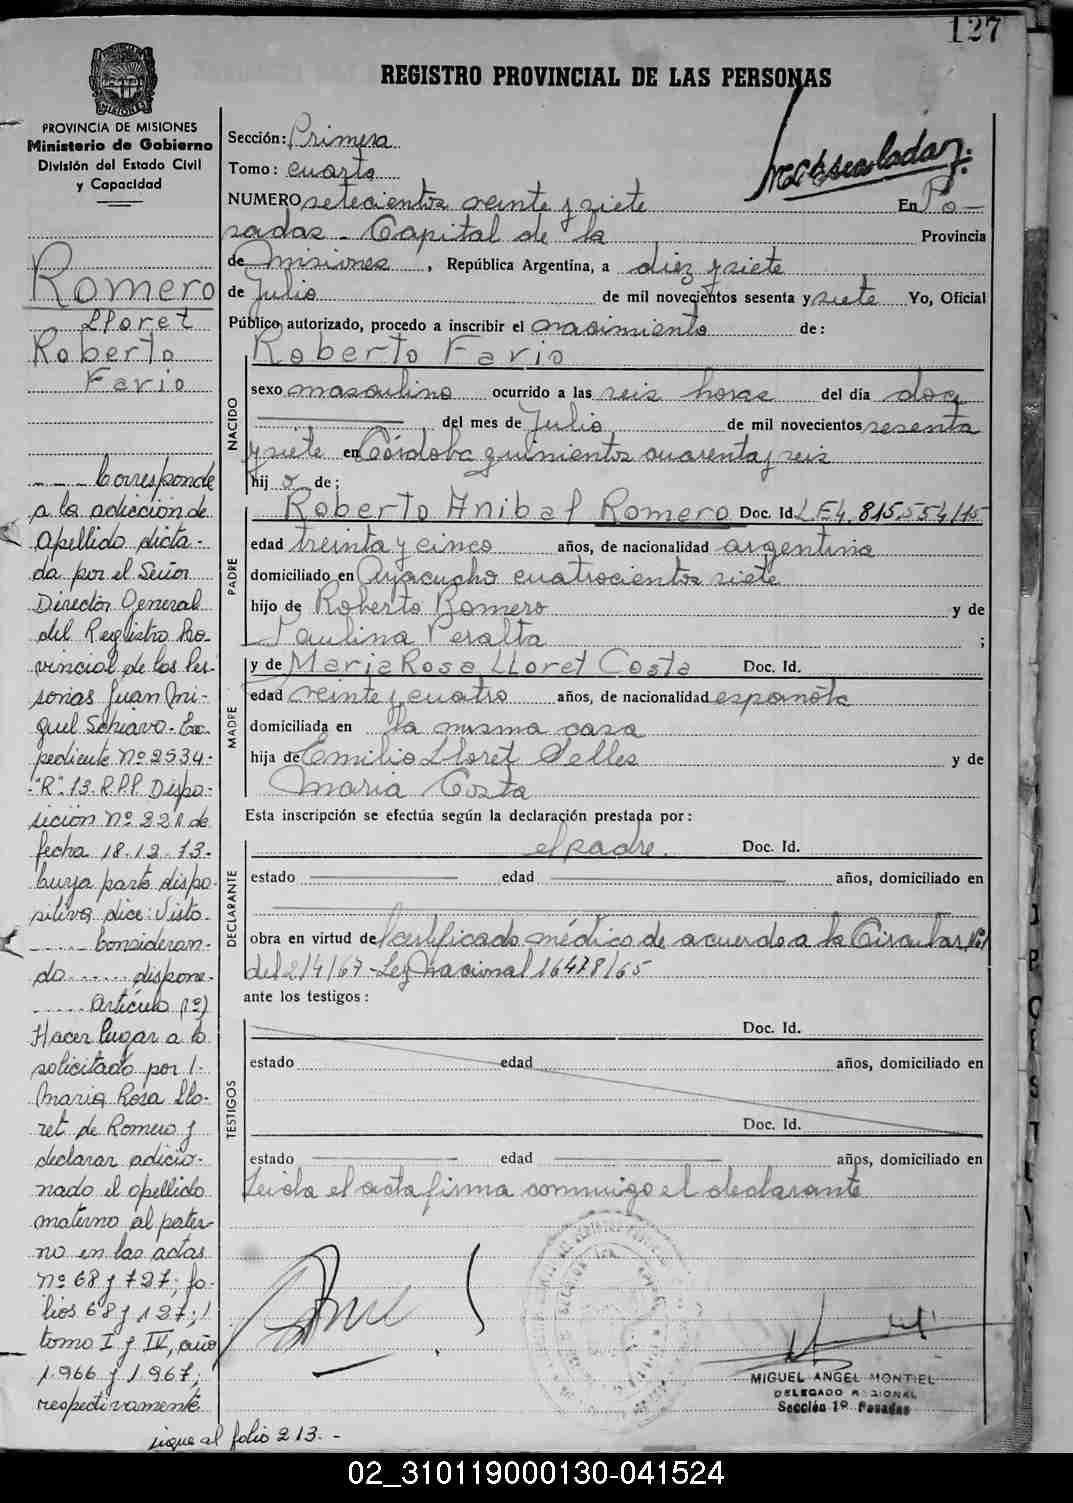 127
REGISTRO PROVINCIAL DE LAS PERSONAS
PROVINCIA DE MISIONES
Ministerio de Gobierno
División del Estado Civil
y Capacidad
Romero
Lloret
Roberto
Fario
---- Corresponde
a la adicción de
apellido dicta-
da por el Señor
Director General
del Registro Pro-
vincial de las Per-
sonas Juan Mi-
guel Schiavo- Ex-
pediente Nº 2534-
"R"-73-R.P.P. Dispo-
sición Nº 221 de
fecha 18-12-73-
Cuya parte dispo-
sitiva dice: Visto-
...... Consideran-
do ...... dispone-
...... Artículo 1º)
Hacer lugar a lo
solicitado por
Maria Rosa Llo-
ret de Romero y
declarar adicio-
nado el apellido
materno al pater-
no en las actas
nº 68 y 727; fo-
lios 68 y 127;
tomo I y IV, año
1.966 y 1.967;
respectivamente
sigue al folio 213.-
Sección: Primera
Tomo: cuarto
NUMERO setecientos veinte y siete En Po-
sadas - Capital de la Provincia
de Misiones, República Argentina, a diez y siete
de Julio de mil novecientos sesenta y siete Yo, Oficial
Público autorizado, procedo a inscribir el nacimiento de:
NACIDO
Roberto Fario
sexo masculino ocurrido a las seis horas del día doce
del mes de Julio de mil novecientos sesenta
y siete en Córdoba quinientos cuarenta y seis
hij o de:
PADRE
Roberto Anibal Romero Doc. Id. L.E 4.815.554/15
edad treinta y cinco años, de nacionalidad argentina
domiciliado en Ayacucho cuatrocientos siete
hijo de Roberto Romero y de
Paulina Peralta ;
MADRE
y de Maria Rosa Lloret Costa Doc. Id.
edad veinte y cuatro años, de nacionalidad española
domiciliada en la misma casa
hija de Emilio Lloret Selles y de
Maria Costa
Esta inscripción se efectúa según la declaración prestada por:
DECLARANTE
el padre. Doc. Id.
estado edad años, domiciliado en
obra en virtud del certificado médico de acuerdo a la Circular Nº 1
del 2/4/67 - Ley Nacional 16478/65
ante los testigos:
TESTIGOS
Doc. Id.
estado edad años, domiciliado en
Doc. Id.
estado edad años, domiciliado en
Leida el acta firma conmigo el declarante
MIGUEL ANGEL MONTIEL
DELEGADO REGIONAL
Sección 1º Posadas
02_310119000130-041524